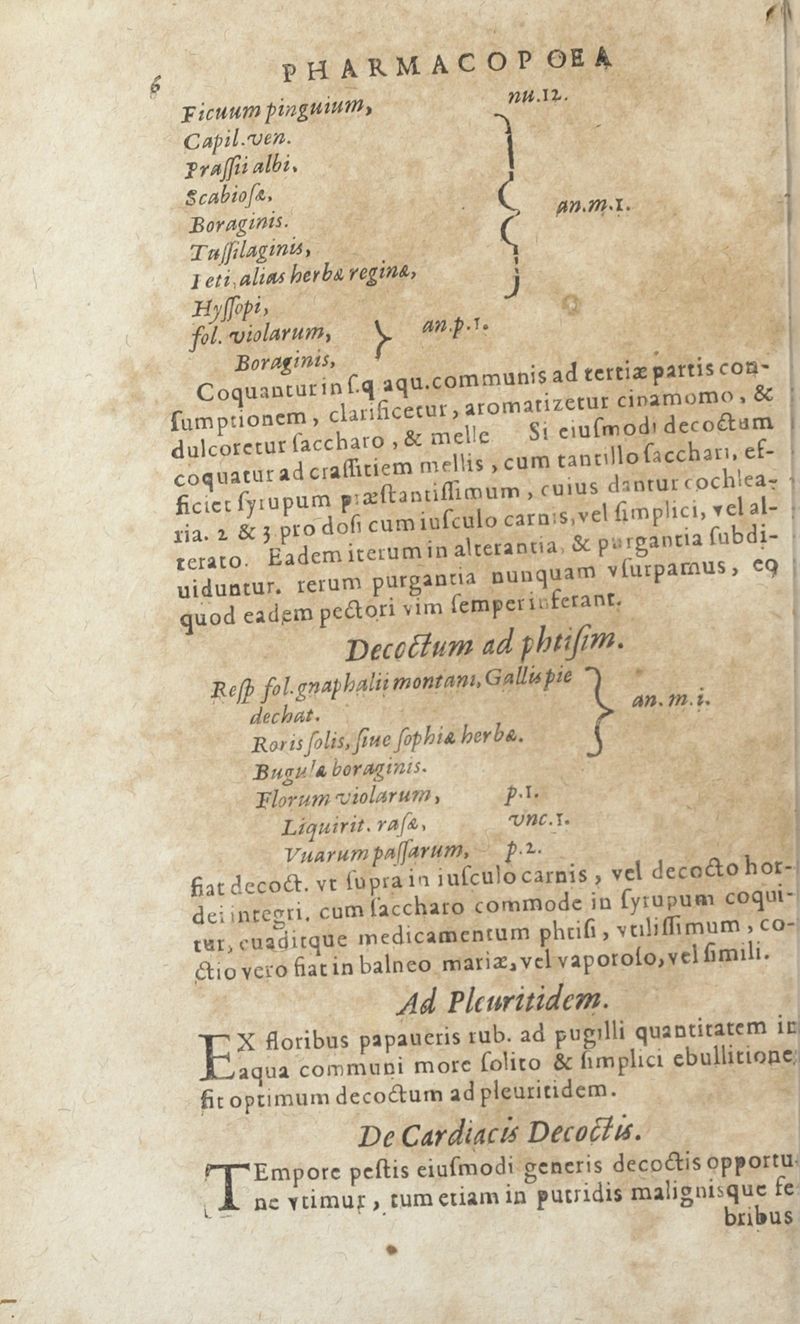 6
PHARMACOPOEA
Ficuum pinguium, nu.12.
Capil.ven.
Prassii albi,
Scabiosæ, an.m.1.
Boraginis.
Tussilaginis,
Ieti, alias herbæ reginæ,
Hyssopi,
fol. violarum, an.p.1.
Boraginis,
Coquantur in s.q aqu.communis ad tertiæ partis con-
sumptionem, clarificetur, aromatizetur cinamomo, &
dulcoretur saccharo, & melle Si eiusmodi decoctum
coquatur ad crassitiem mellis, cum tantillo sacchari, ef-
ficiet syrupum præstantissimum, cuius dantur cochlea-
ria. 2 & 3 pro dosi cum iusculo carnis, vel simplici, vel al-
terato. Eadem iterum in alterantia, & purgantia subdi-
uiduntur. rerum purgantia nunquam vsurpamus, eq
quod eadem pectori vim semper inferant.
Decoctum ad phtisim.
Resp fol.gnaphalii montani, Gallis pie
dechat. an. m.i.
Roris solis, siue sophiæ herbæ.
Bugulæ boraginis.
Florum violarum, p.1.
Liquirit. rasæ, vnc.1.
Vuarum passarum, p.2.
fiat decoct. vt supra in iusculo carnis, vel decocto hor-
dei integri, cum saccharo commode in syrupum coqui-
tur, euaditque medicamentum phtisi, vtilissimum, co-
ctio vero fiat in balneo mariæ, vel vaporoso, vel simili.
Ad Pleuritidem.
EX floribus papaueris rub. ad pugilli quantitatem in
aqua communi more solito & simplici ebullitione,
fit optimum decoctum ad pleuritidem.
De Cardiacis Decoctis.
TEmpore pestis eiusmodi generis decoctis opportu-
ne vtimur, tum etiam in putridis malignisque fe
bribus